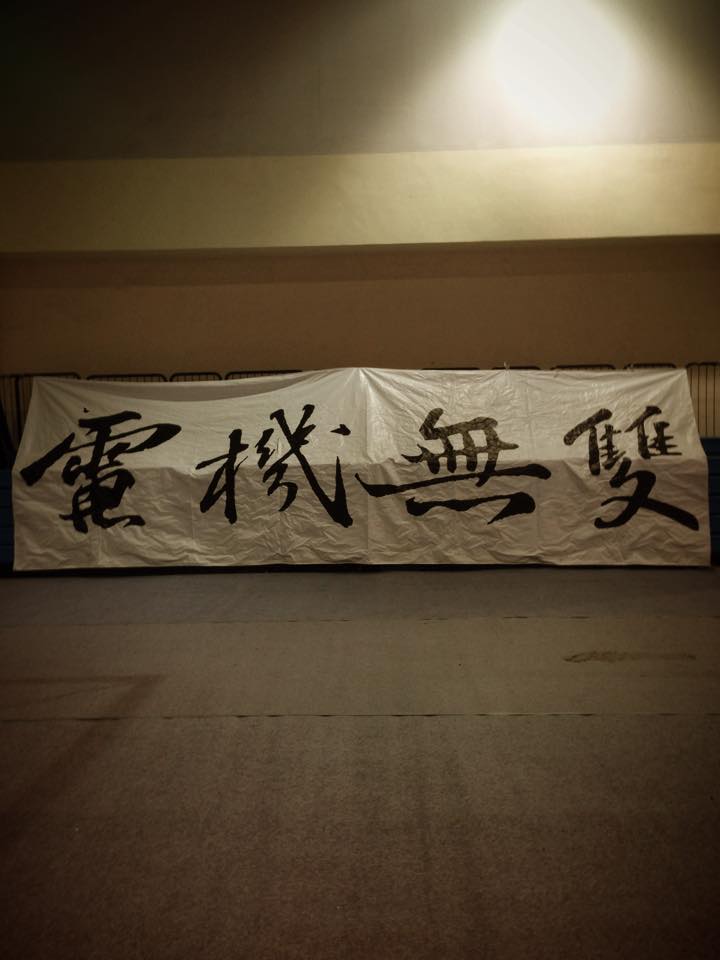 電機無雙